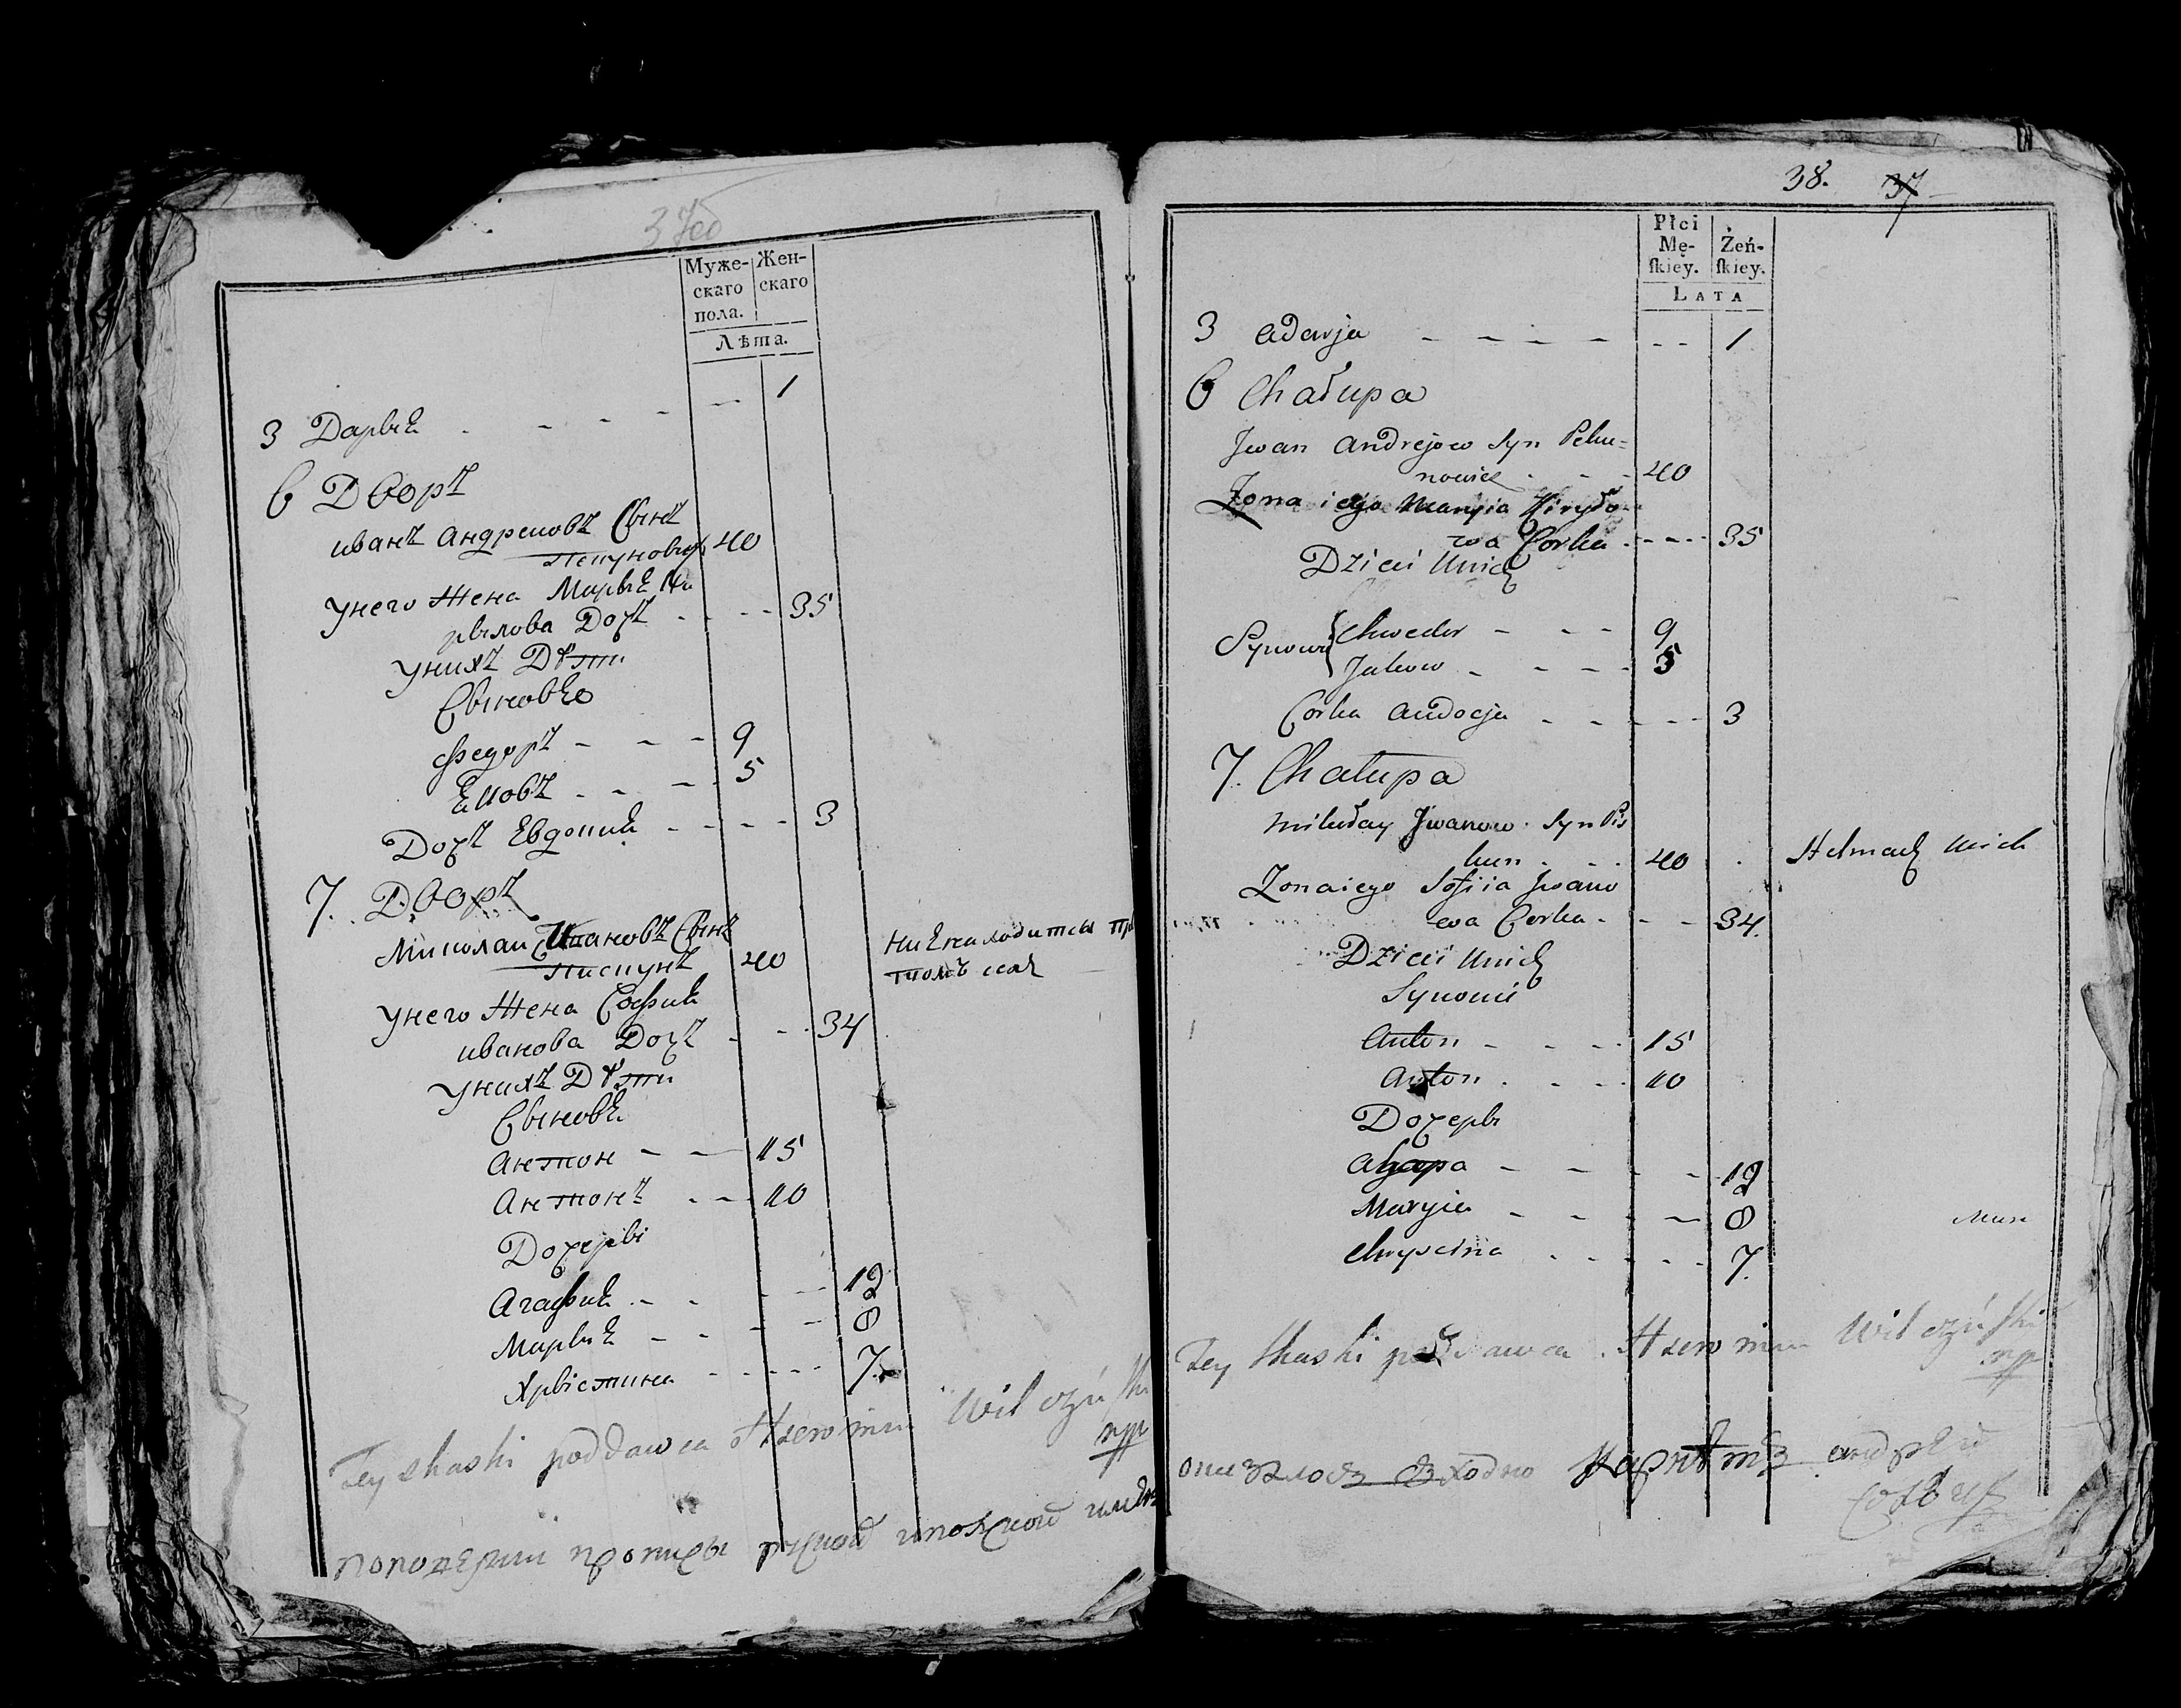 37об
Муже-
скаго
пола.
Жен-
скаго
Лѣта.
3 Дарья - - - - 1
6 Дворъ
иванъ андреиовъ Сынъ
Пекуновичъ 40
унего Жена Марья Ки
рылова Дочъ - - - - 35
унихъ Дѣти
Сыновья
Федоръ - - - 9
Яковъ - - - 5
Дочъ Евдокия - - - - 3
7. Дворъ
Миколаи Ивановъ Сынъ
Пискунъ 40
ния находитсы
унего Жена София
иванова Дочъ - - - 34
унихъ Дѣти
Сыновя
Антон - - - 15
Антонъ - - - 10
Дочерьі
Агафия - - - - 12
Марья - - - - 8
Хрьістина - - - - 7.
Tey skaski poddawca Hieronim Wilczyński
mp
38. 37
Płci
Mę-
skiey.
Żeń-
skiey.
LATA
3 adarja - - - - - - - 1
6 Chałupa
Jwan Andrejow Syn Peku=
nowicz - - - 40
Zona iego Maryia Kiryło
wa Corka - - - - 35
Dzieci Unich
Synowie { Chwedor - - - 9
Jakow - - - - 5
Corka Audocja - - - - - 3
7. Chałupa
Mikołay Jwanow Syn Pis
kun - - - 40
Zonaiego Sofiia Jwano
wa Corka - - - 34.
Dzieci Unich
Synowie
Anton - - - - 15
Anton - - - - 10
Дочеры
Agapa - - - - 12
Maryia - - - - 8
Chryscina - - - - - 7.
Tey skaski poddawca Hieronim Wilczyński
mp
андрей